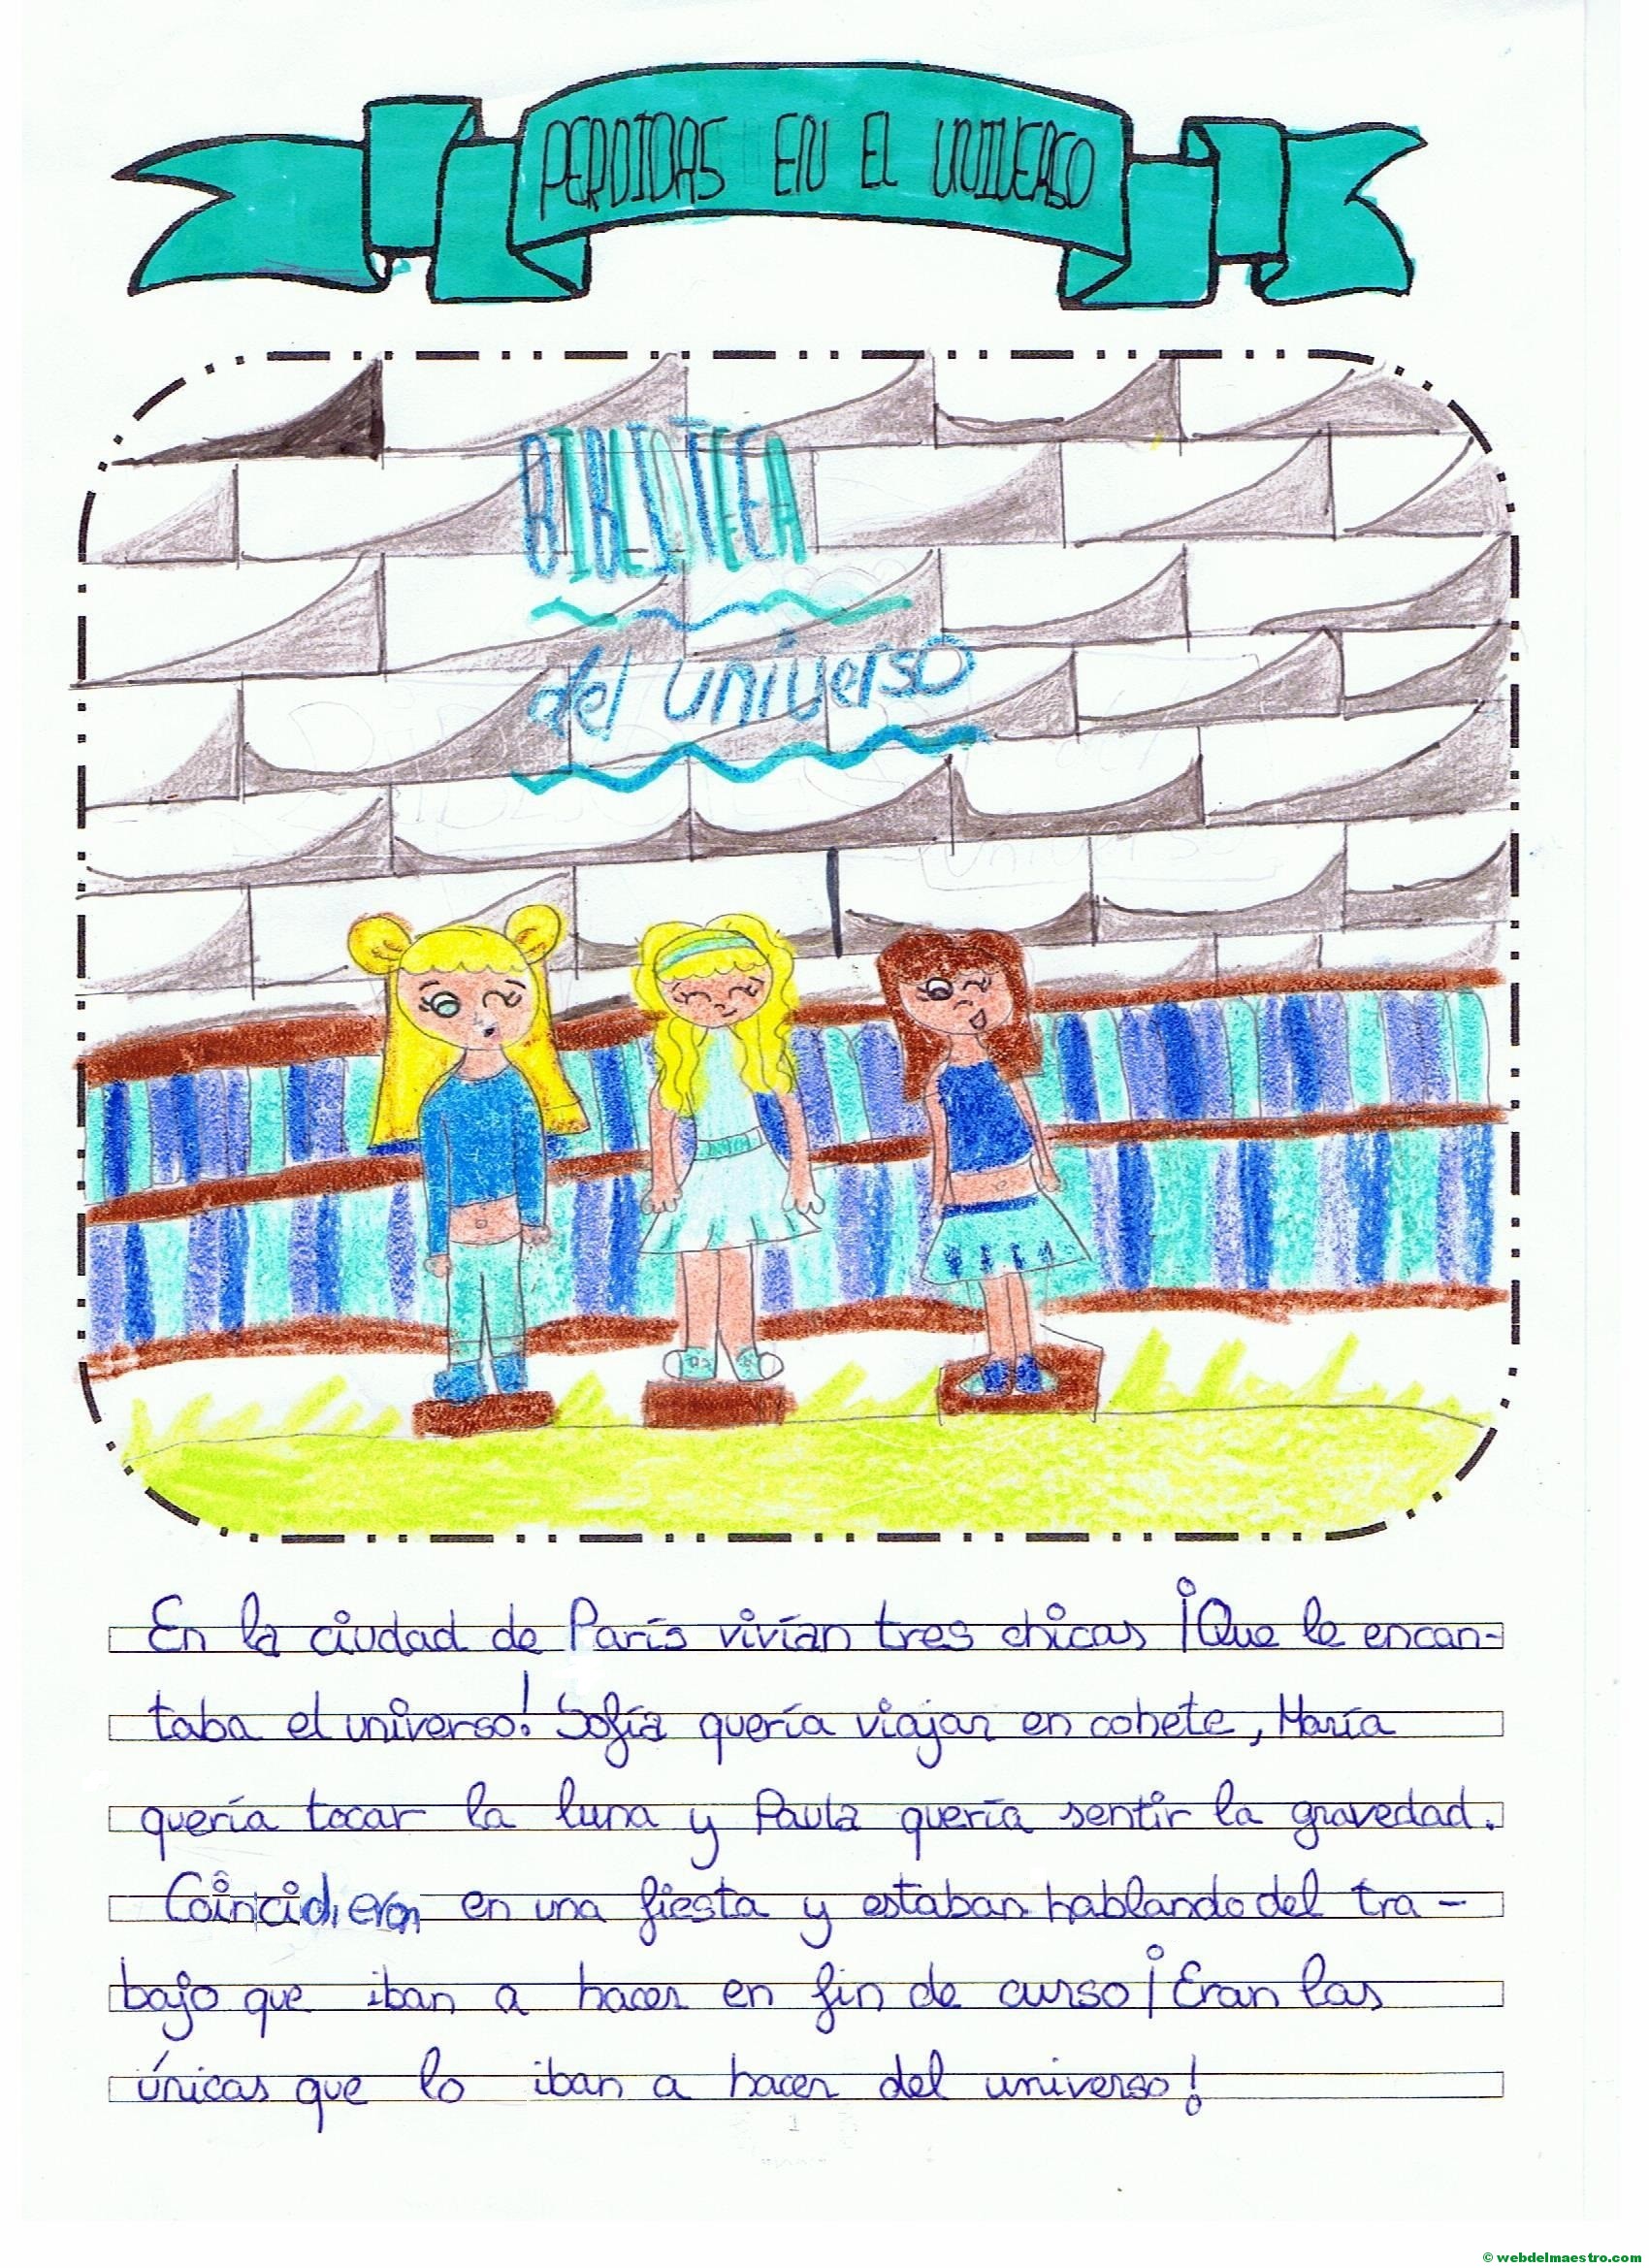 PERDIDAS EN EL UNIVERSO
BIBLIOTECA
del universo
En la ciudad de París vivían tres chicas ¡Que le encan-
taba el universo! Sofía quería viajar en cohete, María
quería tocar la luna y Paula quería sentir la gravedad.
Coincidieron en una fiesta y estaban hablando del tra-
bajo que iban a hacer en fin de curso ¡Eran las
únicas que lo iban a hacer del universo!
1
© webdelmaestro.com